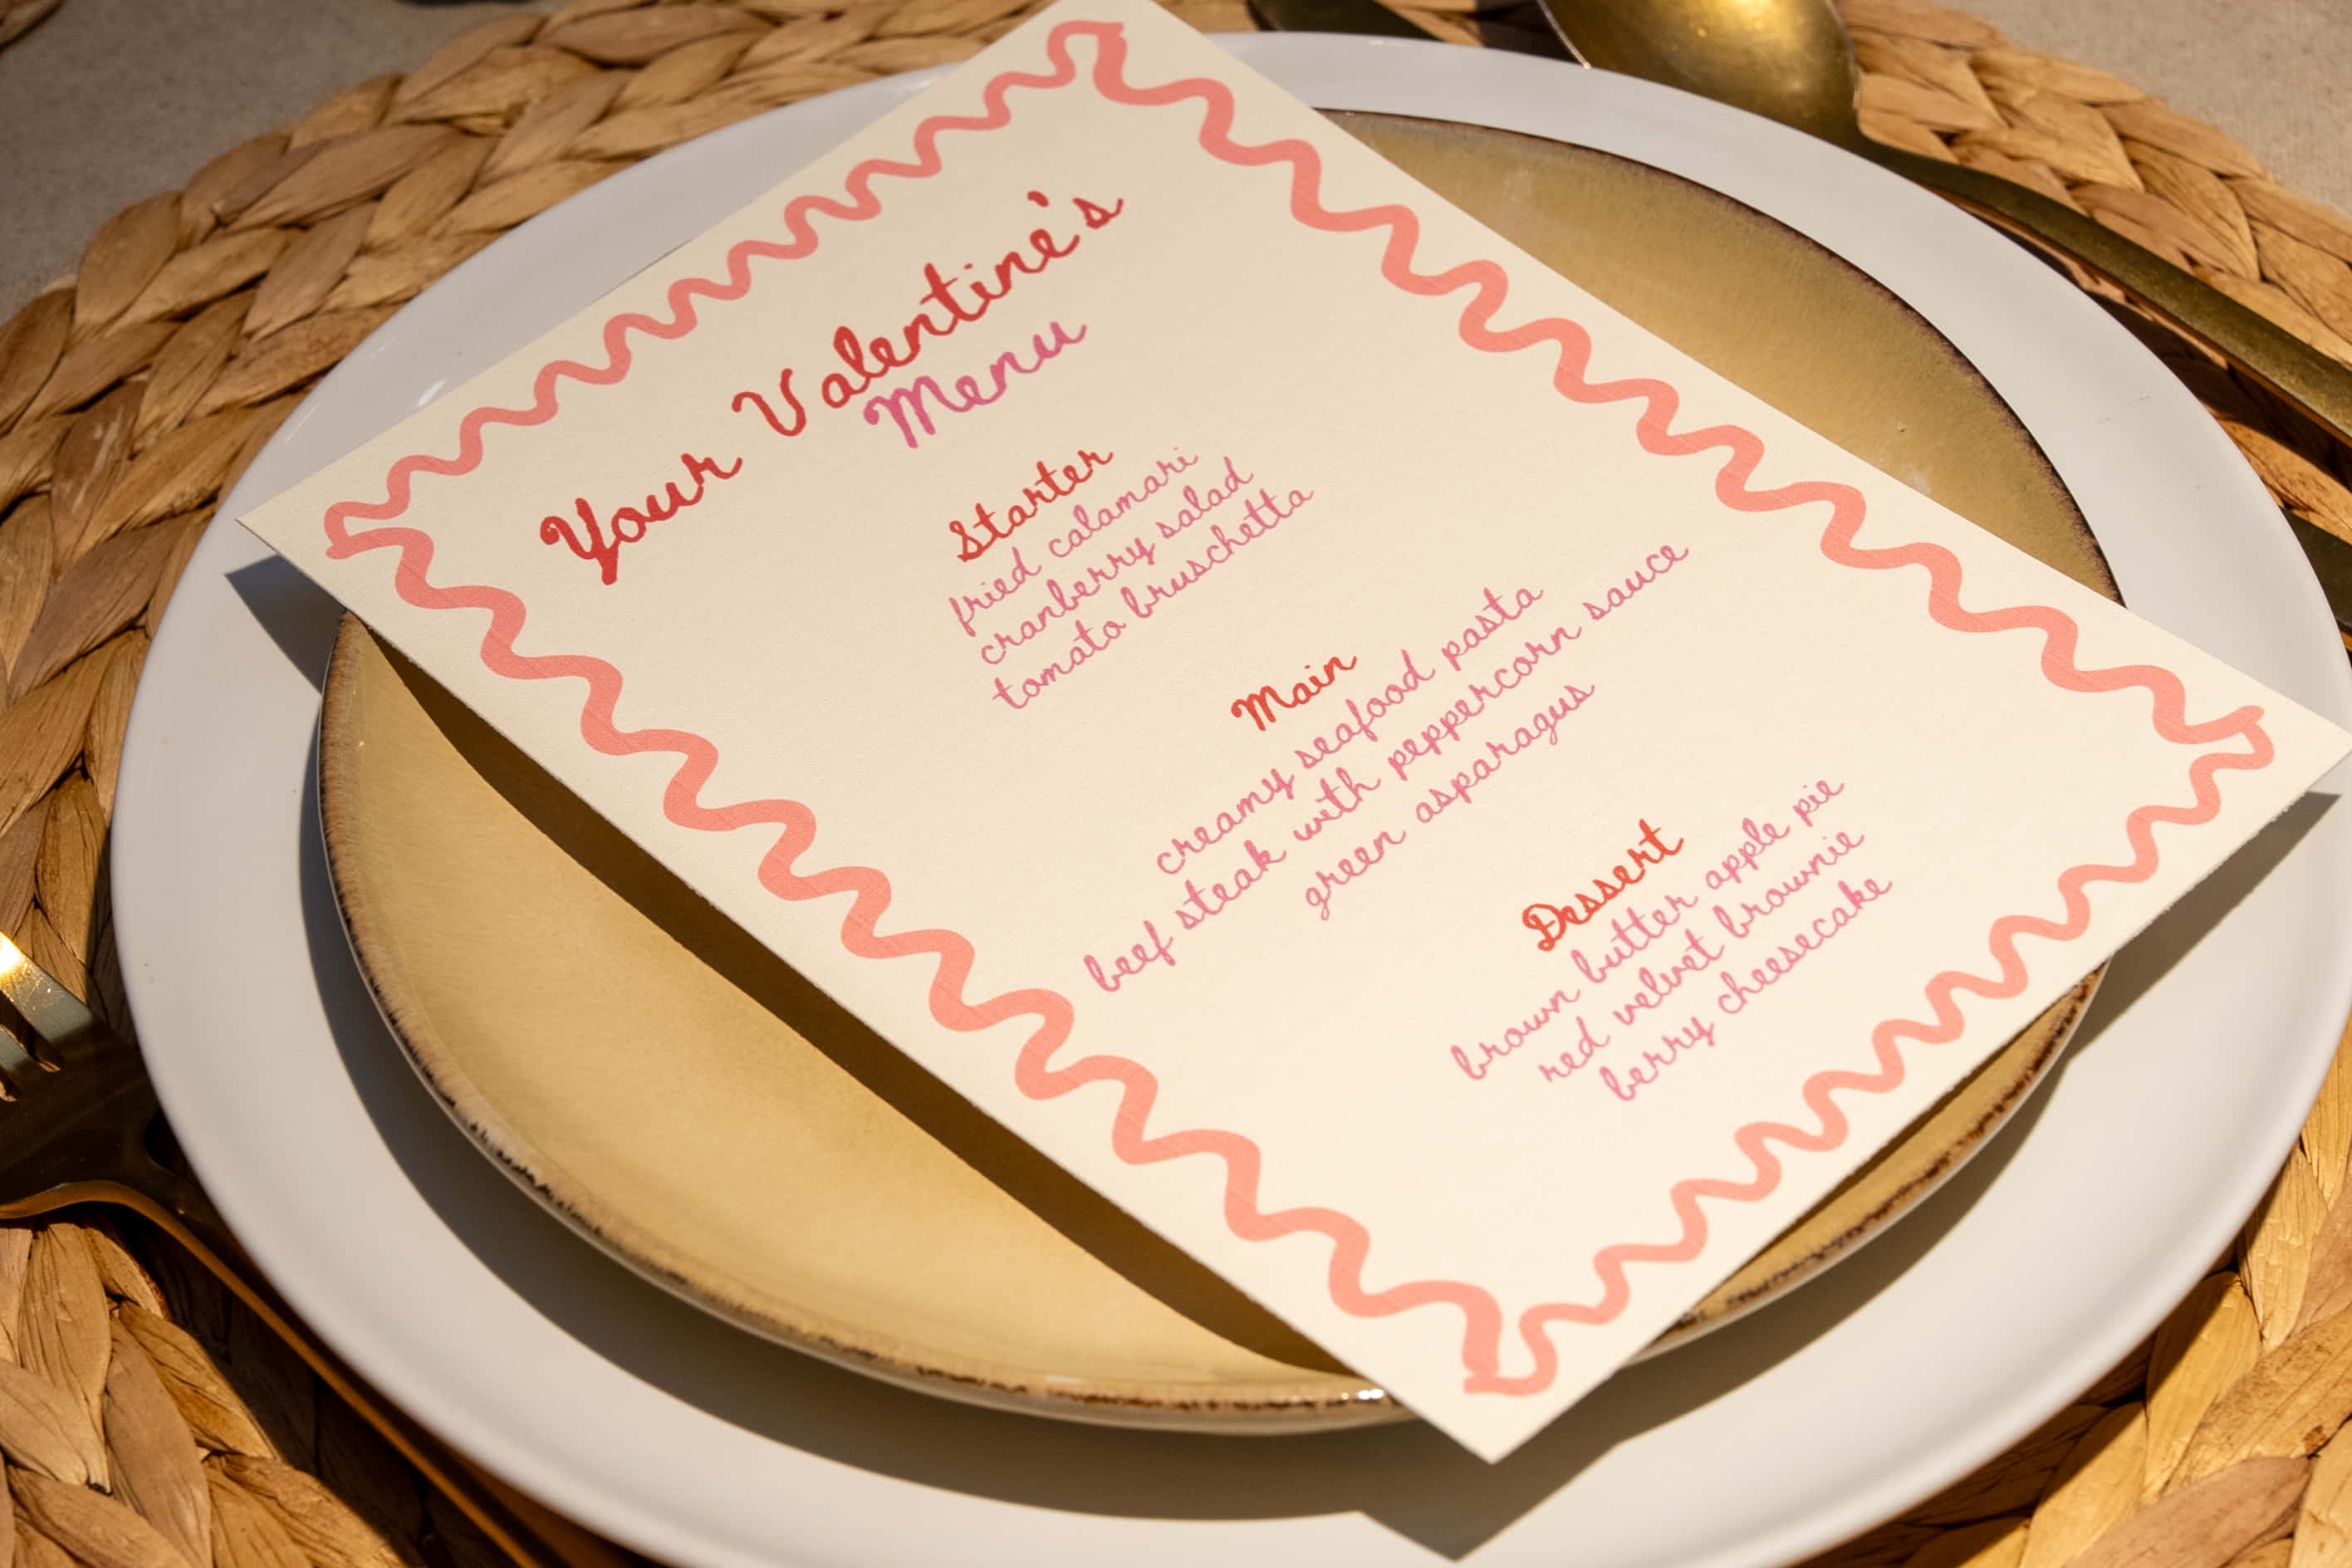 Your Valentine's
Menu
Starter
fried calamari
cranberry salad
tomato bruschetta
Main
creamy seafood pasta
beef steak with peppercorn sauce
green asparagus
Dessert
brown butter apple pie
red velvet brownie
berry cheesecake